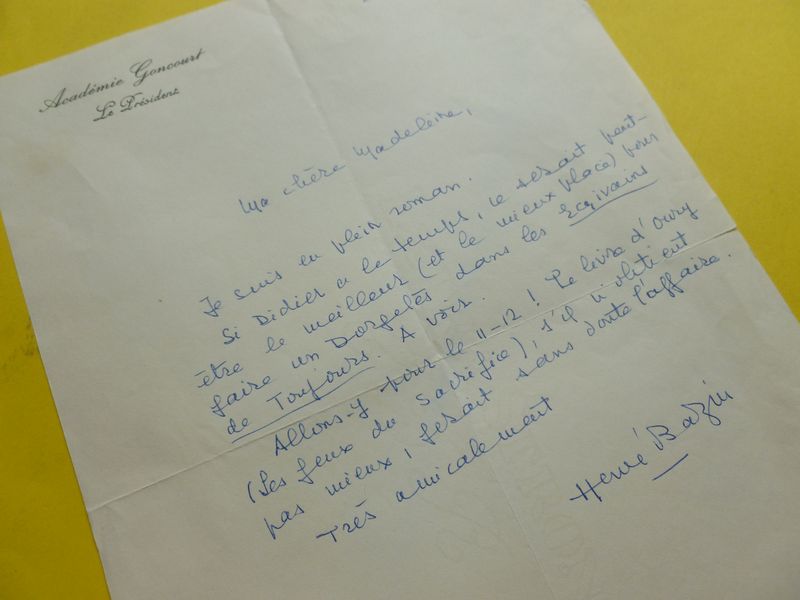 Académie Goncourt
Le Président
Ma chère Madeleine,
Je suis en plein roman.
Si Didier a le temps, ce serait peut-
être le meilleur (et le mieux placé) pour
faire un Dorgelès dans les Ecrivains
de Toujours. A voir.
Allons-y pour le 11-12 ! Le livre d'Oury
(Les feux du Sacrifice), s'il n'obtient
pas mieux, ferait sans doute l'affaire.
Très amicalement
Hervé Bazin